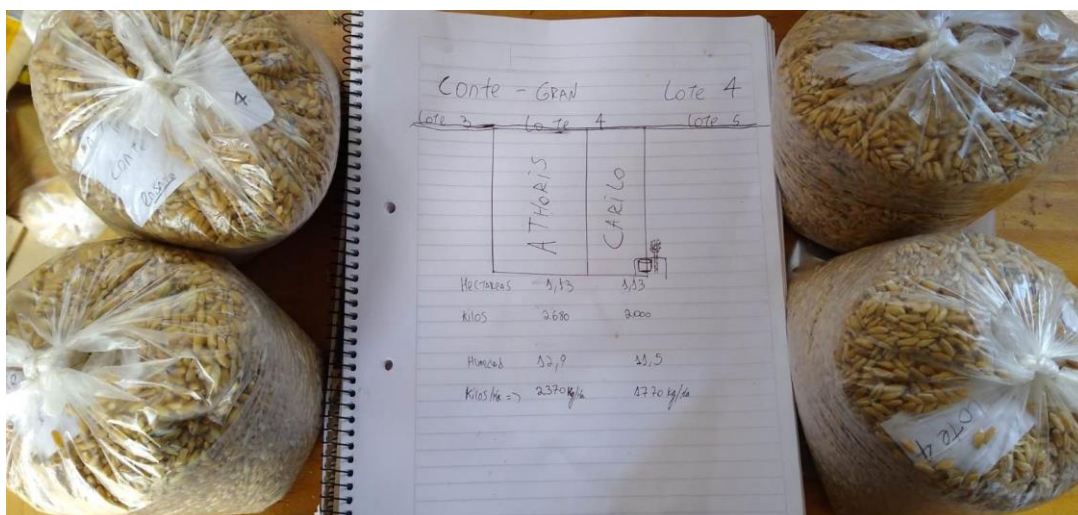 Conte - GRAN Lote 4
Lote 3 Lote 4 Lote 5
ATHORIS CARILO
Hectareas 1,13 1,13
Kilos 2680 2000
Humedad 12,9 11,5
Kilos/ha => 2370 kg/ha 1770 kg/ha
4
Conte
Ensayo
Lote 4